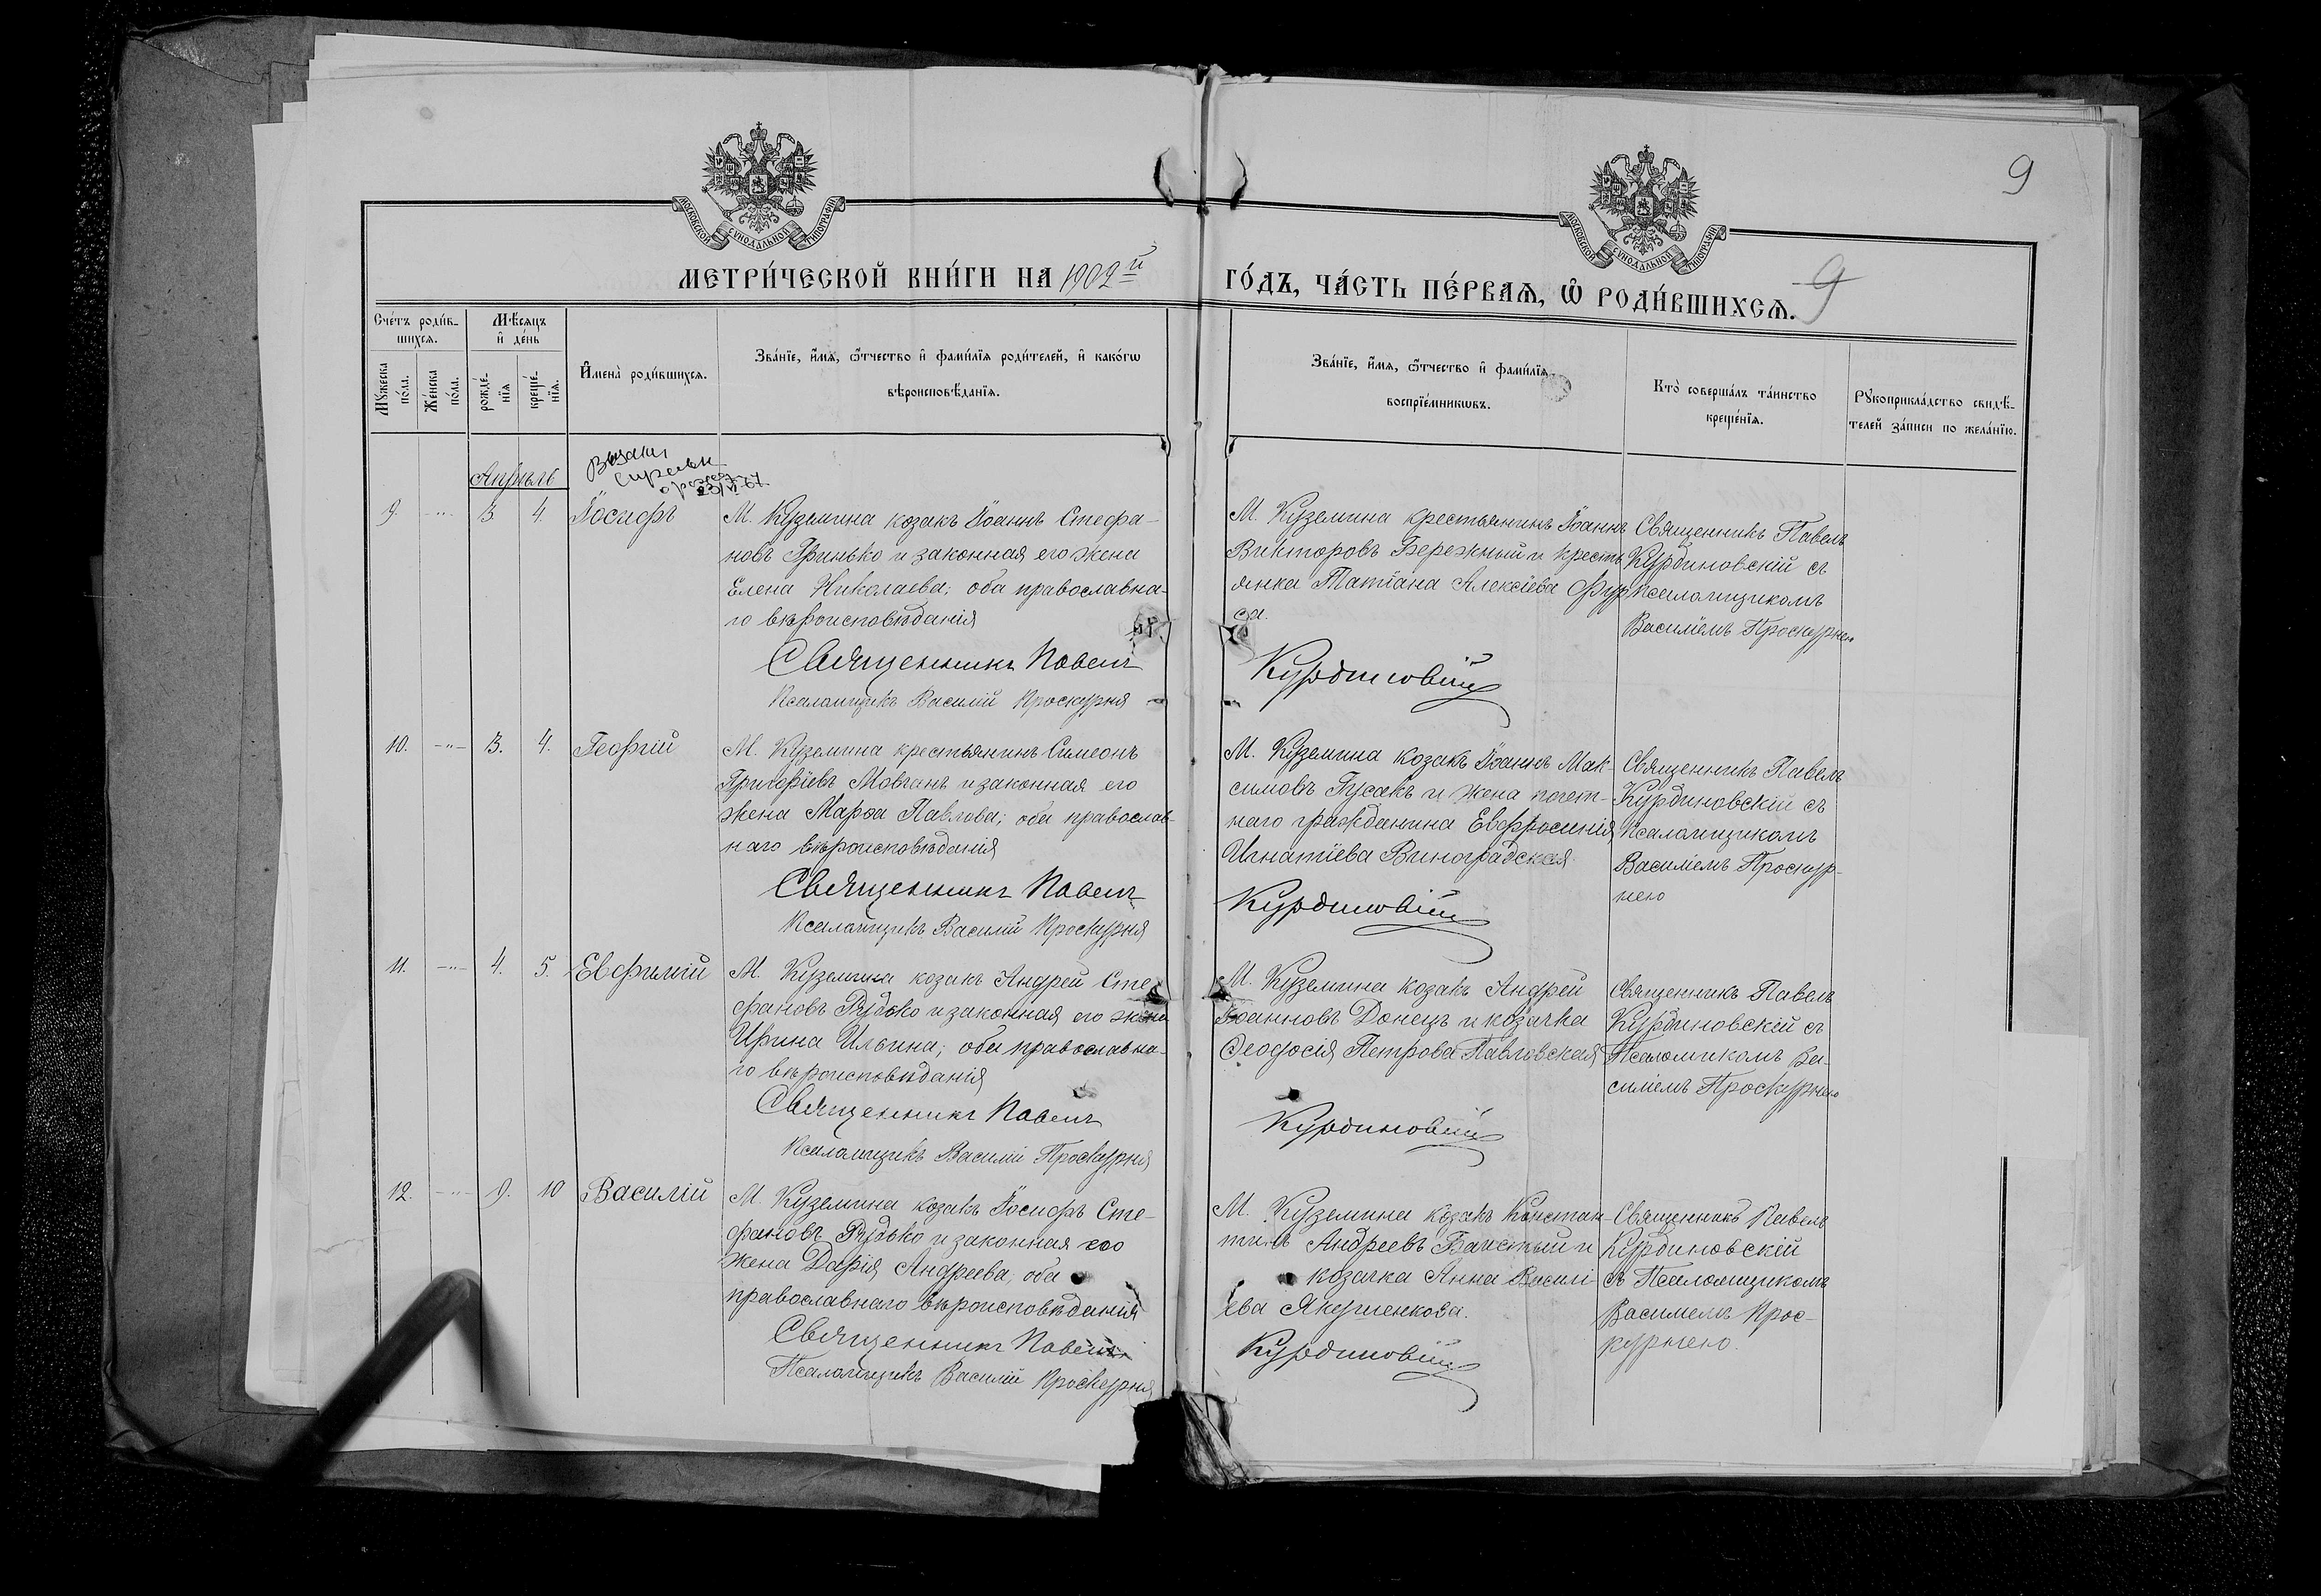 9
МОСКОВСКОЙ СУНОДАЛЬНОЙ ТИПОГРАФІИ
МОСКОВСКОЙ СУНОДАЛЬНОЙ ТИПОГРАФІИ
МЕТРИ́ЧЕСКОЙ КНИ́ГИ НА 1902й
ГО́ДЪ, ЧА́СТЬ ПЕ́РВАѦ, Ѽ РОДИ́ВШИХСѦ.
9
Сче́тъ роди́в-
шихсѧ.
Мꙋ́жеска по́ла.
Же́нска по́ла.
Мѣ́сѧцъ
и҆ де́нь
рожде́-
нїѧ
креще́-
нїѧ.
И҆мена̀ роди́вшихсѧ.
Зва́нїе, и҆́мѧ, ѻ҆́тчество и҆ фами́лїѧ роди́телей, и҆ како́гѡ
вѣроисповѣ́данїѧ.
Зва́нїе, и҆́мѧ, ѻ҆́тчество и҆ фами́лїѧ
воспрїе́мникѡвъ.
Кто̀ соверша́лъ та́инство
креще́нїѧ.
Рꙋкоприкла́дство свидѣ́-
телей за́писи по жела́нїю.
Апрѣль
9. -"- 3. 4. Іосифъ
М. Куземина козакъ Іоаннъ Стефа-
новъ Гринько и законная его жена
Елена Николаева; оба православна-
го вѣроисповѣданія
Священникъ Павелъ
Псаломщикъ Василій Проскурня
М. Куземина крестьянинъ Іоаннъ
Викторовъ Бережный и кресть
янка Татіана Алексіева Фур
са.
Курдиновскій
Священникъ Павелъ
Курдиновскій съ
псаломщикомъ
Василіемъ Проскурнею
10. -"- 3. 4. Георгій
М. Куземина крестьянинъ Симеонъ
Григоріевъ Мовчанъ и законная его
жена Марѳа Павлова; оба православ-
наго вѣроисповѣданія
Священникъ Павелъ
Псаломщикъ Василій Проскурня
М. Куземина козакъ Іоаннъ Мак-
симовъ Гусакъ и жена почет-
наго гражданина Евфросинія
Игнатіева Виноградская
Курдиновскій
Священникъ Павелъ
Курдиновскій съ
Псаломщикомъ
Василіемъ Проскур-
нею
11. -"- 4. 5. Евфимій
М. Куземина козакъ Андрей Сте-
фановъ Рудько и законная его жена
Ирина Ильина; оба православна-
го вѣроисповѣданія
Священникъ Павелъ
Псаломщикъ Василій Проскурня
М. Куземина козакъ Андрей
Іоанновъ Донецъ и козачка
Ѳеодосія Петрова Павловская
Курдиновскій
Священникъ Павелъ
Курдиновскій съ
Псаломикомъ Ва-
силіемъ Проскурнею
12. -"- 9. 10 Василій
М. Куземина козакъ Іосифъ Сте-
фановъ Рудько и законная его
жена Дарія Андреева, оба
православнаго вѣроисповѣданія
Священникъ Павелъ
Псаломщикъ Василій Проскурня
М. Куземина козакъ Констан-
тинъ Андреевъ и
козачка Анна Василі-
ева
Курдиновскій
Священникъ Павелъ
Курдиновскій
съ Псаломщикомъ
Василіемъ Прос-
курнею.